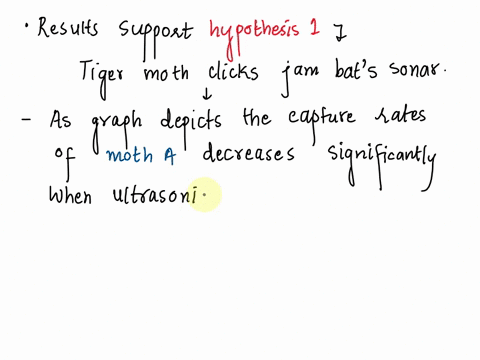 • Results support hypothesis 1 ⁆
Tiger moth clicks jam bat's sonar.
↓
- As graph depicts the capture rates
of moth A decreases significantly
when ultrasoni